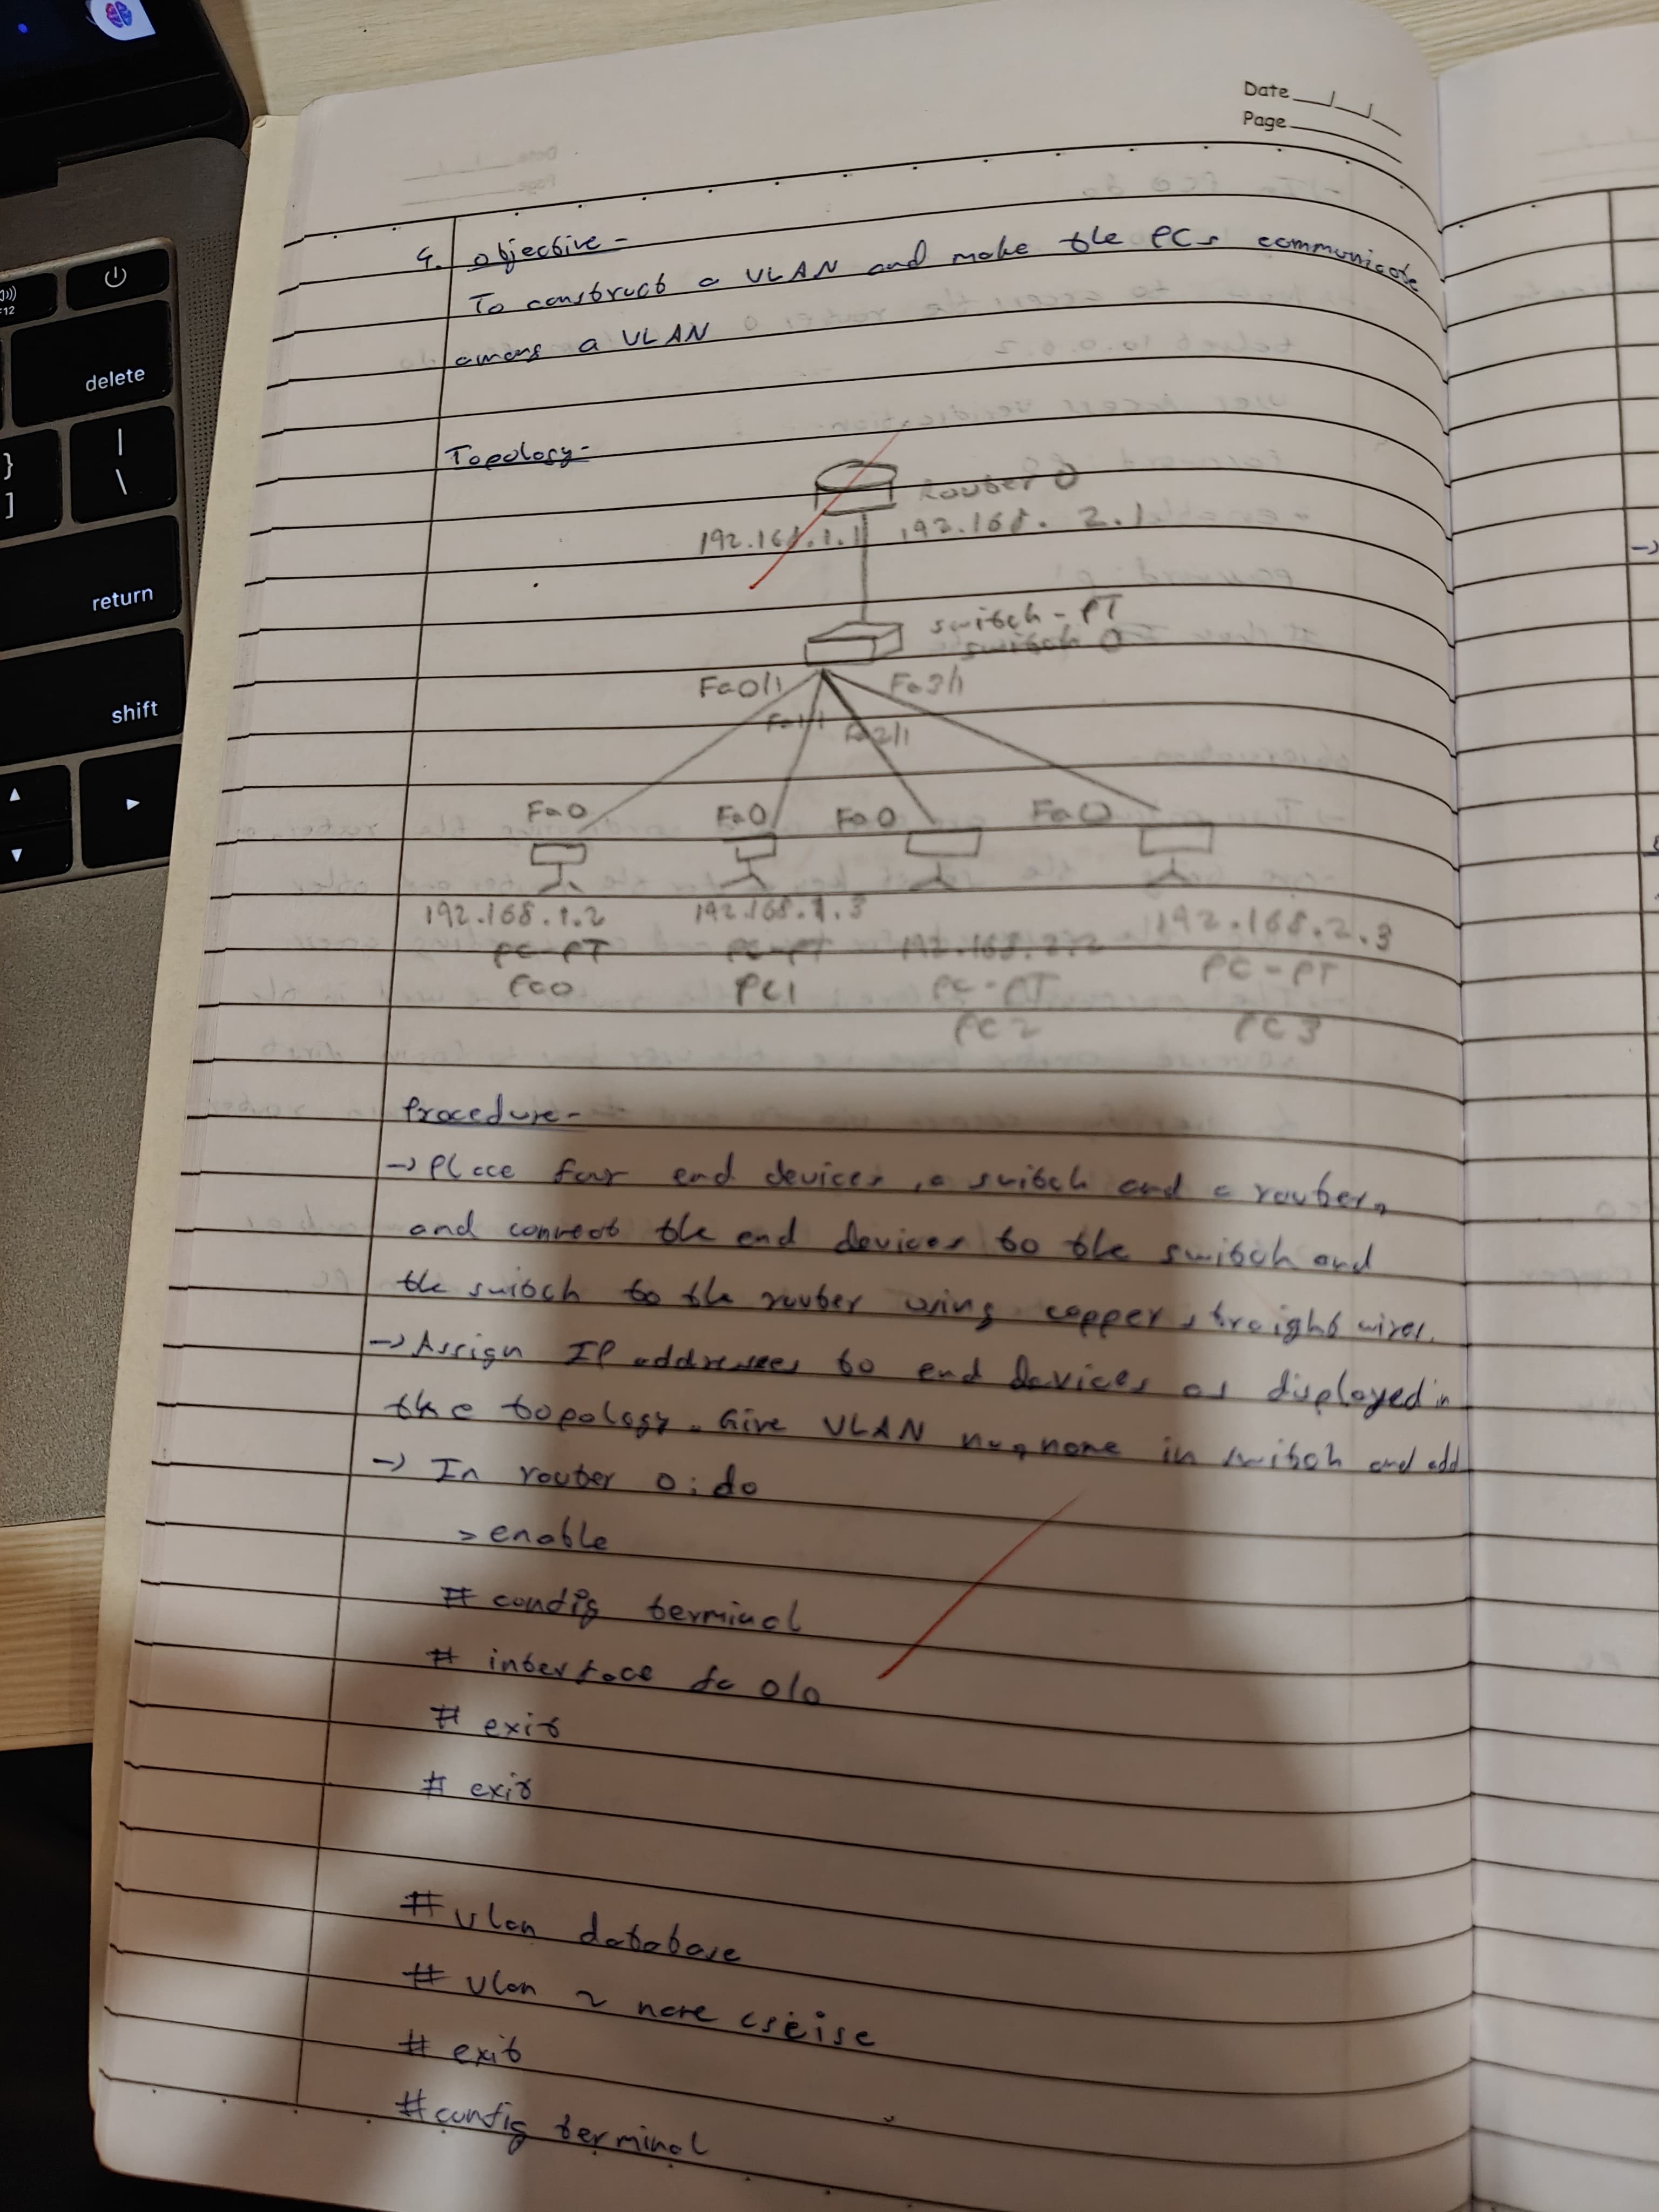 Date
Page
4. Objective -
To construct a VLAN and make the PCs communicate
among a VLAN
Topology -
Router 0
192.168.1.1 192.168.2.1
switch-PT
switch 0
Fa0/1 Fa3/1
Fa1/1 Fa2/1
Fa0 Fa0 Fa0 Fa0
192.168.1.2 192.168.1.3 192.168.2.2 192.168.2.3
PC-PT PC-PT PC-PT PC-PT
PC0 PC1 PC2 PC3
Procedure -
→ Place four end devices, a switch and a router,
and connect the end devices to the switch and
the switch to the router using copper straight wires.
→ Assign IP addresses to end devices as displayed in
the topology. Give VLAN no, name in switch and add
→ In router 0: do
> enable
# config terminal
# interface fa 0/0
# exit
# exit
# vlan database
# vlan 2 name cseise
# exit
# config terminal
F12
delete
}
]
|
\
return
shift